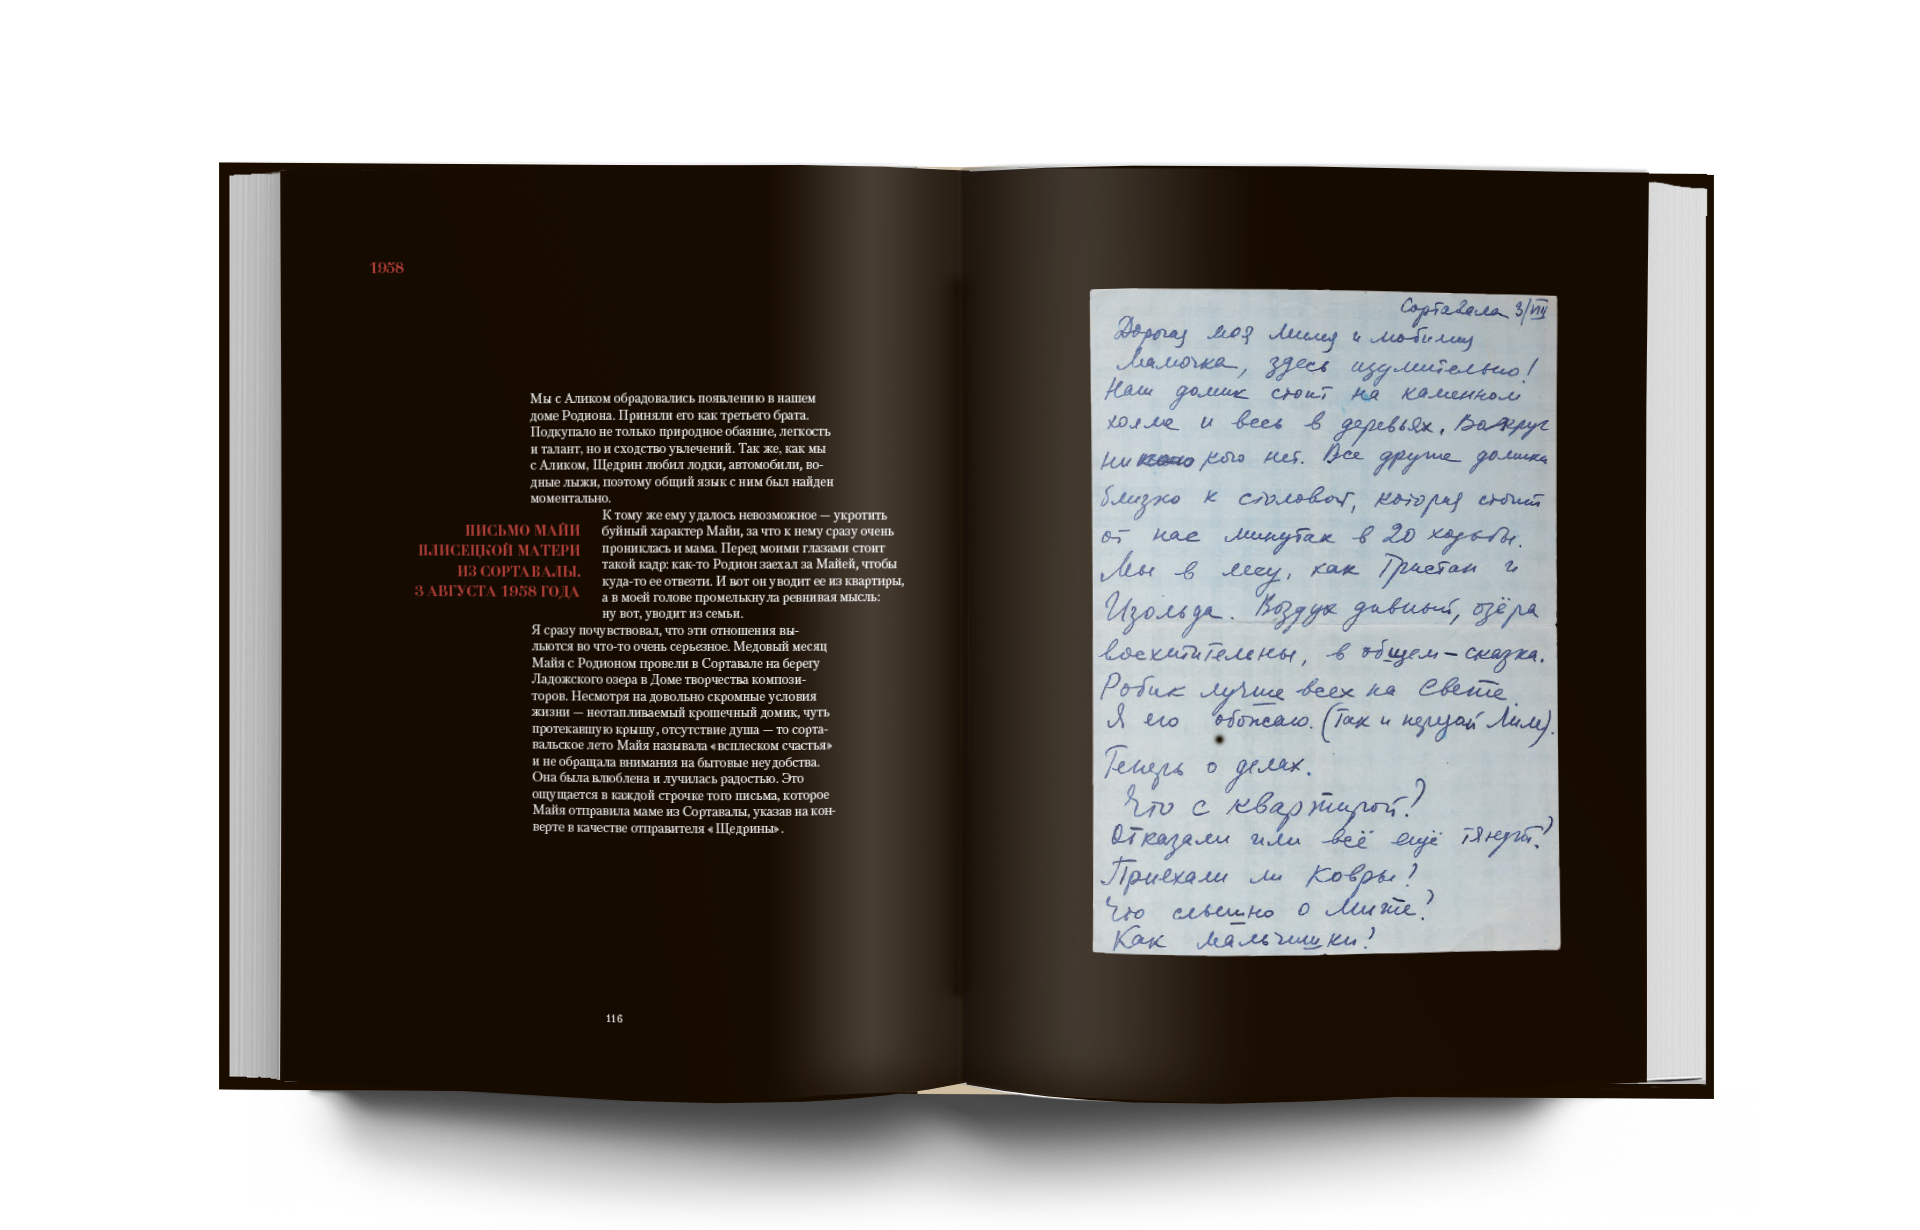 1958
Мы с Аликом обрадовались появлению в нашем
доме Родиона. Приняли его как третьего брата.
Подкупало не только природное обаяние, легкость
и талант, но и сходство увлечений. Так же, как мы
с Аликом, Щедрин любил лодки, автомобили, во-
дные лыжи, поэтому общий язык с ним был найден
моментально.
К тому же ему удалось невозможное — укротить
буйный характер Майи, за что к нему сразу очень
прониклась и мама. Перед моими глазами стоит
такой кадр: как-то Родион заехал за Майей, чтобы
куда-то ее отвезти. И вот он уводит ее из квартиры,
а в моей голове промелькнула ревнивая мысль:
ну вот, уводит из семьи.
Я сразу почувствовал, что эти отношения вы-
льются во что-то очень серьезное. Медовый месяц
Майя с Родионом провели в Сортавале на берегу
Ладожского озера в Доме творчества компози-
торов. Несмотря на довольно скромные условия
жизни — неотапливаемый крошечный домик, чуть
протекавшую крышу, отсутствие душа — то сорта-
вальское лето Майя называла «всплеском счастья»
и не обращала внимания на бытовые неудобства.
Она была влюблена и лучилась радостью. Это
ощущается в каждой строчке того письма, которое
Майя отправила маме из Сортавалы, указав на кон-
верте в качестве отправителя «Щедрины».
ПИСЬМО МАЙИ
ПЛИСЕЦКОЙ МАТЕРИ
ИЗ СОРТАВАЛЫ.
3 АВГУСТА 1958 ГОДА
116
Сортавала 3/VIII
Дорогая моя милая и любимая
Мамочка, здесь изумительно!
Наш домик стоит на каменном
холме и весь в деревьях. Вокруг
ни кого нет. Все другие домики
близко к столовой, которая стоит
от нас минутах в 20 ходьбы.
Мы в лесу, как Тристан и
Изольда. Воздух дивный, озёра
восхитительны, в общем – сказка.
Робик лучше всех на свете.
Я его обожаю. (Так и передай Лиле).
Теперь о делах.
Что с квартирой?
Отказали или всё ещё тянут?
Приехали ли ковры?
Что слышно о Мите?
Как мальчишки?